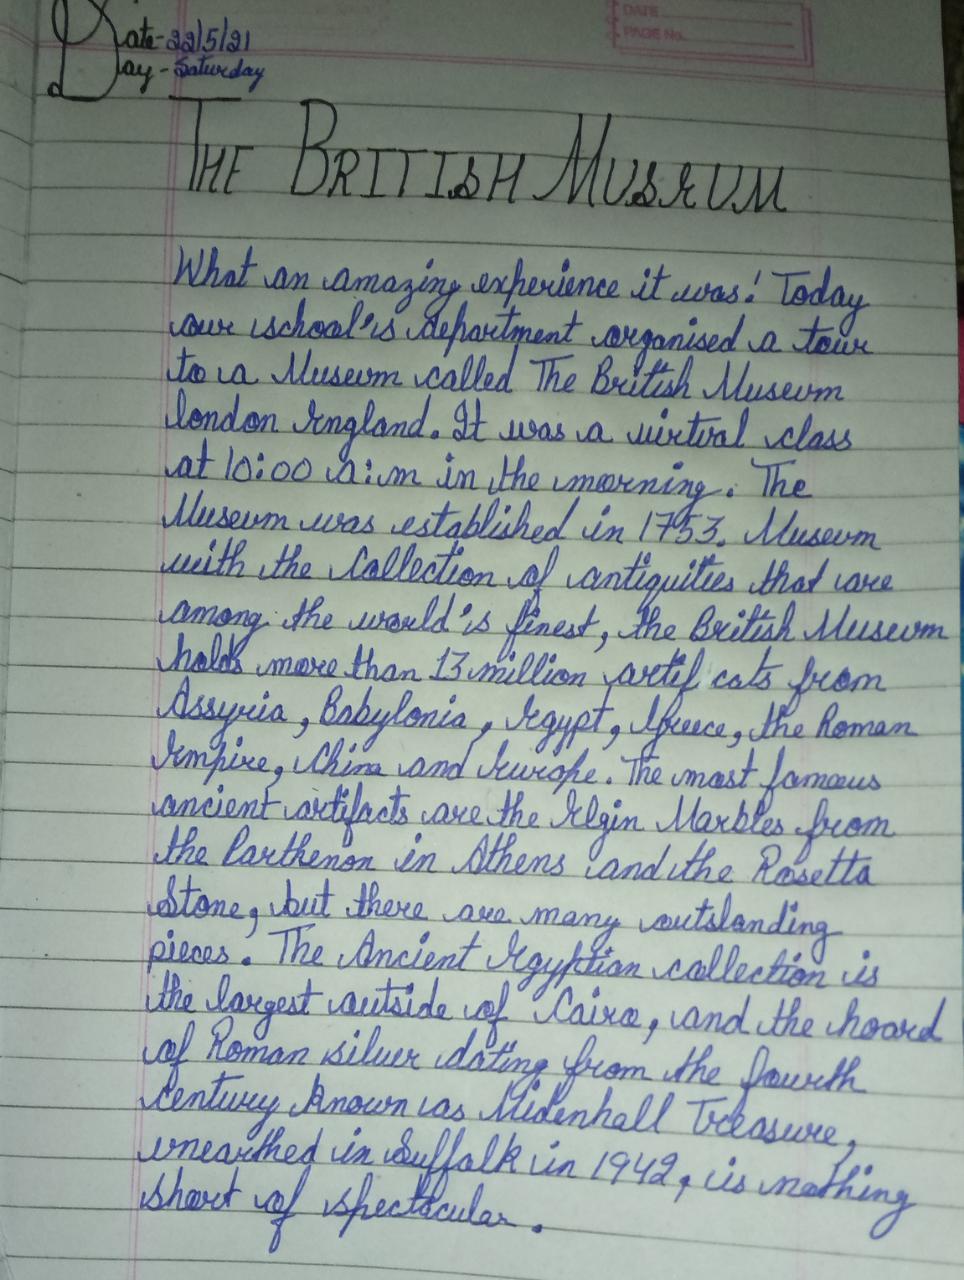 DATE
PAGE No.
Date-22/5/21
Day-Saturday
THE BRITISH MUSEUM
What an amazing experience it was! Today
our school's department organised a tour
to a Museum called The British Museum
london England. It was a virtual class
at 10:00 a:m in the morning. The
Museum was established in 1753. Museum
with the Collection of antiquities that are
among the world's finest, the British Museum
holds more than 13 million artif cats from
Assyria, Babylonia, Egypt, Greece, the Roman
Empire, China and Europe. The most famous
ancient artifacts are the Elgin Marbles from
the Parthenon in Athens and the Rosetta
Stone, but there are many outslanding
pieces. The Ancient Egyptian collection is
the largest outside of Cairo, and the hoard
of Roman silver dating from the fourth
Century known as Midenhall Treasure,
unearthed in Suffolk in 1942, is nothing
short of spectacular.